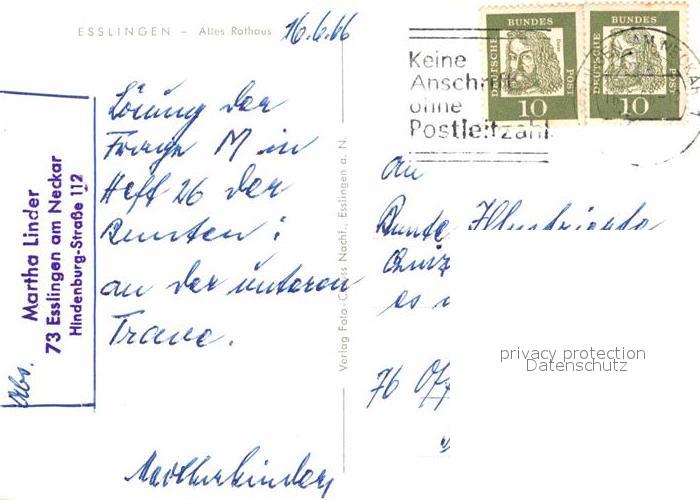 ESSLINGEN – Altes Rathaus
16.6.66
Lösung der
Frage M in
Heft 26 der
Bunten:
an der unteren
Trave.
Martha Linder
Abs.
Martha Linder
73 Esslingen am Neckar
Hindenburg-Straße 112
Verlag Foto-
Nachf., Esslingen a. N.
Keine
Anschrift
ohne
Postleitzahl
DEUTSCHE BUNDES POST
10
DEUTSCHE BUNDES POST
10
An
Bunte Illustrierte
Quiz
76 Off
privacy protection
Datenschutz